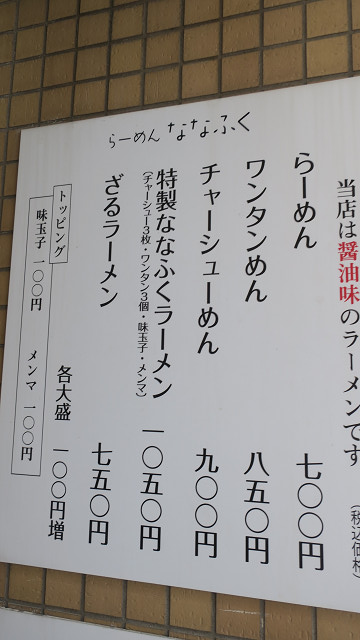 らーめん ななふく
当店は醤油味のラーメンです
(税込価格
らーめん 七〇〇円
ワンタンめん 八五〇円
チャーシューめん 九〇〇円
特製ななふくラーメン 一〇五〇円
(チャーシュー3枚・ワンタン3個・味玉子・メンマ)
ざるラーメン 七五〇円
各大盛 一〇〇円増
トッピング
味玉子 一〇〇円 メンマ 一〇〇円